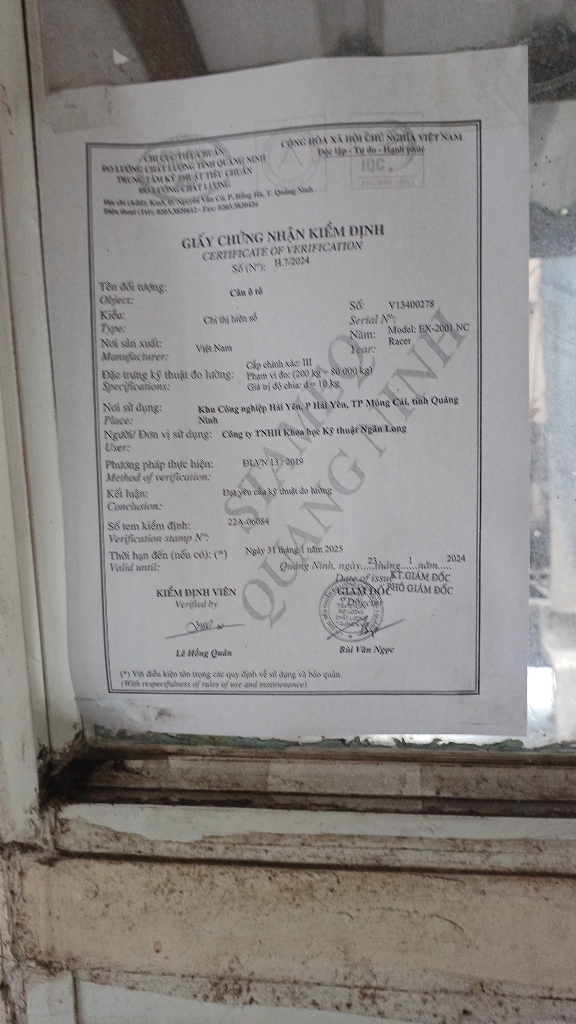 CHI CỤC TIÊU CHUẨN
ĐO LƯỜNG CHẤT LƯỢNG TỈNH QUẢNG NINH
TRUNG TÂM KỸ THUẬT TIÊU CHUẨN
ĐO LƯỜNG CHẤT LƯỢNG
Địa chỉ (Add): Km8, Đ.Nguyễn Văn Cừ, P. Hồng Hà, T. Quảng Ninh
Điện thoại (Tel): 0203.3820612 - Fax: 0203.3820426
CỘNG HÒA XÃ HỘI CHỦ NGHĨA VIỆT NAM
Độc lập - Tự do - Hạnh phúc
GIẤY CHỨNG NHẬN KIỂM ĐỊNH
CERTIFICATE OF VERIFICATION
Số (Nº): H.7/2024
Tên đối tượng: Cân ô tô
Object:
Kiểu: Chỉ thị hiện số Số: V13400278
Type: Serial Nº:
Nơi sản xuất: Việt Nam Năm: Model: EX-2001 NC
Manufacturer: Year: Racer
Đặc trưng kỹ thuật đo lường: Cấp chính xác: III
Specifications: Phạm vi đo: (200 kg ÷ 80.000 kg)
Giá trị độ chia: d = 10 kg
Nơi sử dụng: Khu Công nghiệp Hải Yên, P Hải Yên, TP Móng Cái, tỉnh Quảng
Place: Ninh
Người/ Đơn vị sử dụng: Công ty TNHH Khoa học Kỹ thuật Ngân Long
User:
Phương pháp thực hiện: ĐLVN 13 : 2019
Method of verification:
Kết luận: Đạt yêu cầu kỹ thuật đo lường
Conclusion:
Số tem kiểm định: 22A-06084
Verification stamp Nº:
Thời hạn đến (nếu có): (*) Ngày 31 tháng 1 năm 2025
Valid until:
Quảng Ninh, ngày 23 tháng 1 năm 2024
Date of issue
KIỂM ĐỊNH VIÊN
Verified by
KT.GIÁM ĐỐC
GIÁM ĐỐC PHÓ GIÁM ĐỐC
Director
Lê Hồng Quân
Bùi Văn Ngọc
(*) Với điều kiện tôn trọng các quy định về sử dụng và bảo quản.
(With respectfulness of rules of use and maintenance)
STAMEQ
QUANG NINH